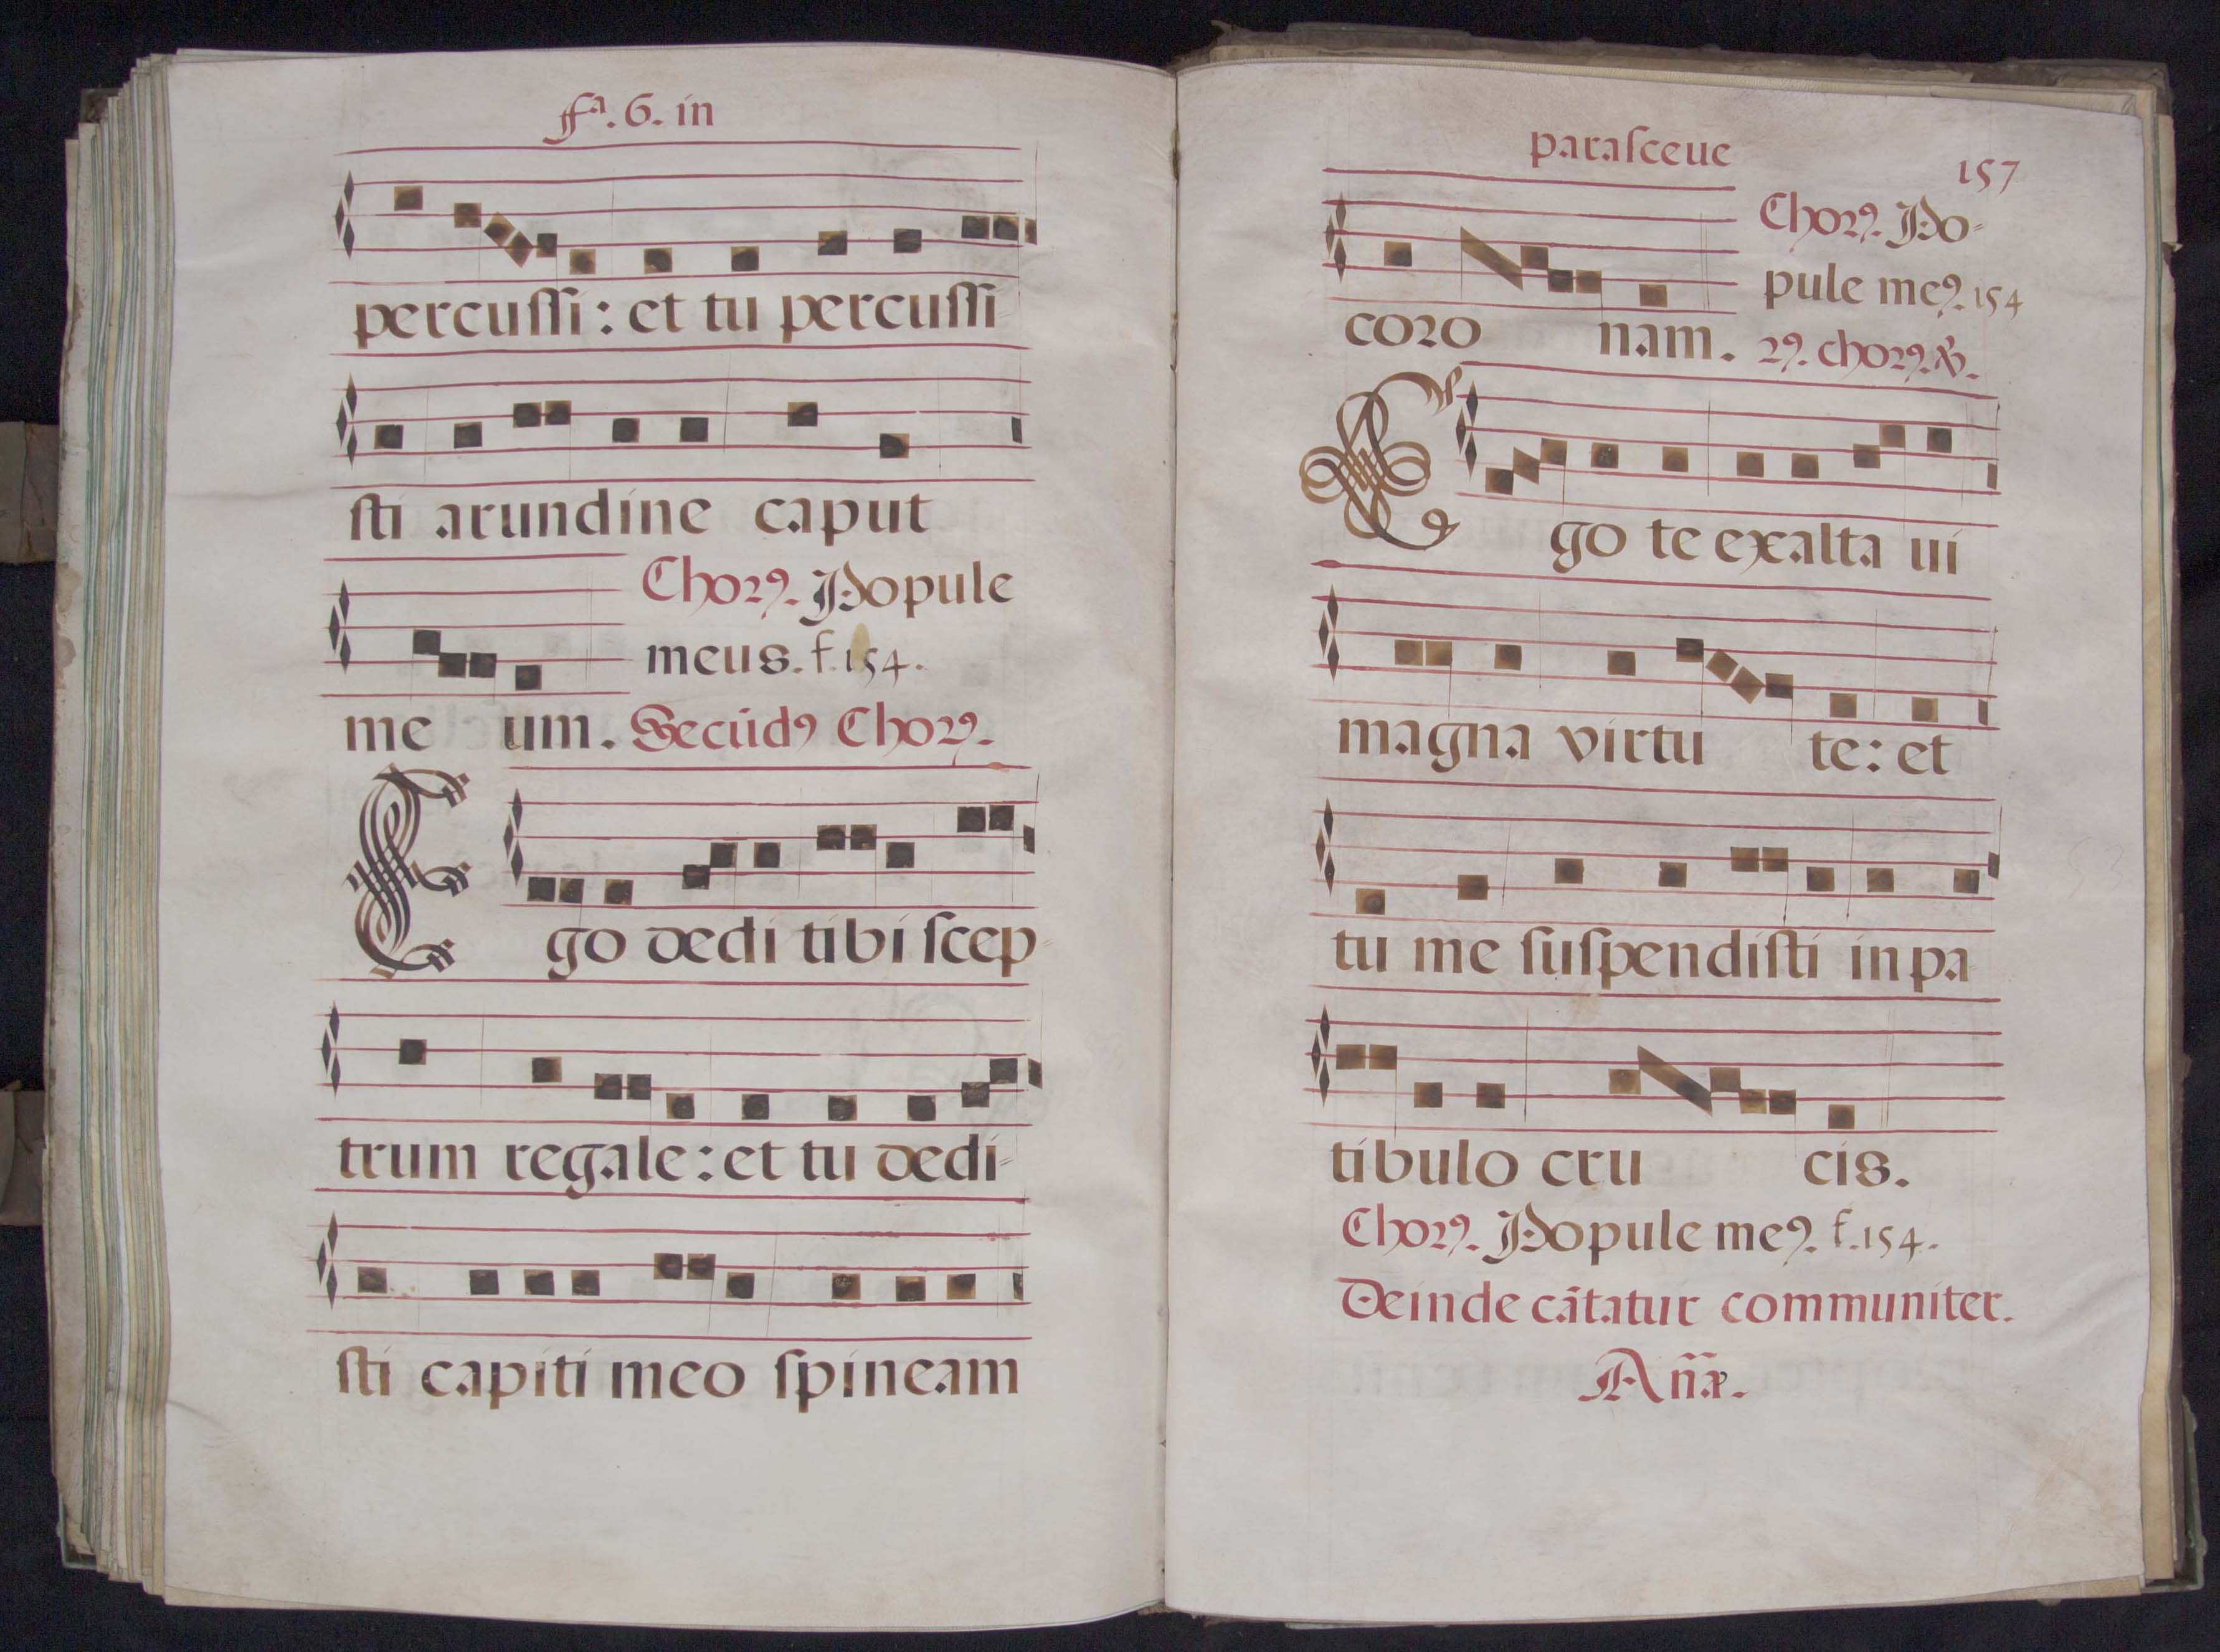 fª. 6. in
percussi: et tu percussi
sti arundine caput
Chorꝰ. Popule
meus. f. 154.
me um. Secūdꝰ Chorꝰ.
Ego dedi tibi scep-
trum regale: et tu dedi-
sti capiti meo spineam
parasceue
157
Chorꝰ. Po-
pule meꝰ. 154
coro nam. 2ꝰ. chorꝰ. ℣.
Ego te exalta ui
magna virtu te: et
tu me suspendisti in pa
tibulo cru cis.
Chorꝰ. Popule meꝰ. f. 154.
Deinde cātatur communiter.
Añæ.